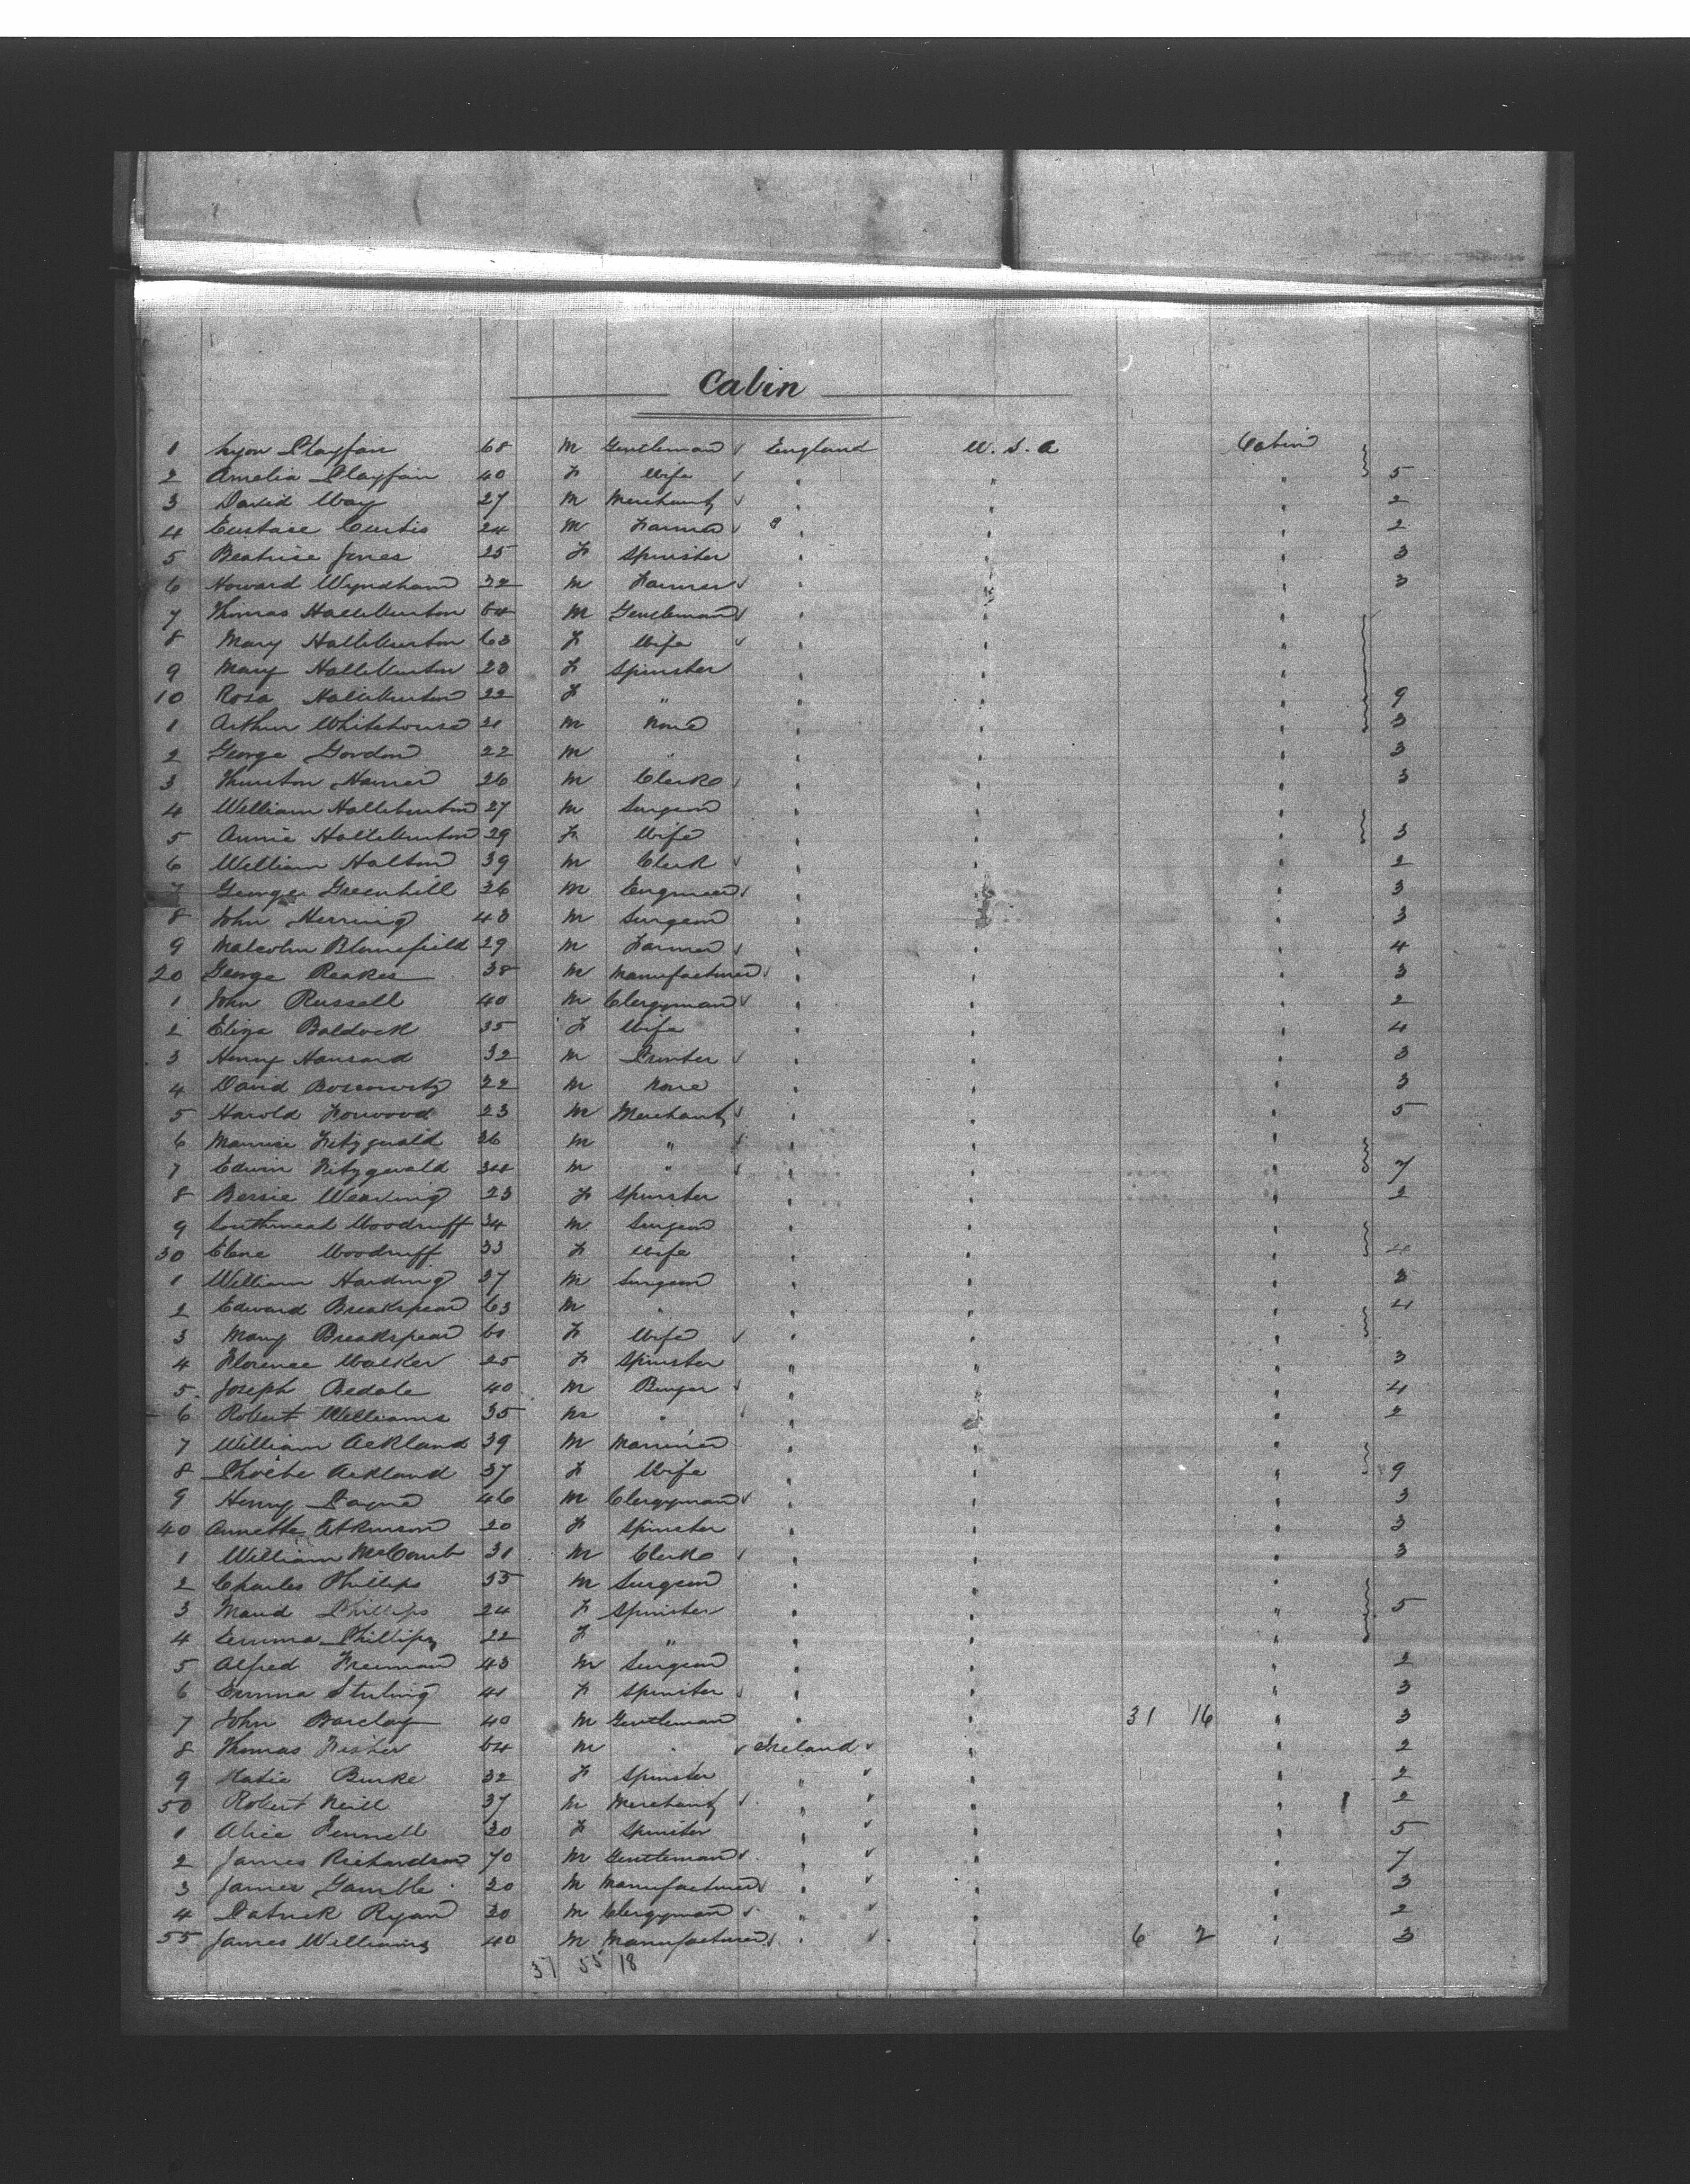 Cabin
1 Lyon Playfair 68 M Gentleman ✓ England U.S.A Cabin
2 Amelia Playfair 40 F Wife ✓ " " " 5
3 David Way 27 M Merchant ✓ " " " 2
4 Eustace Curtis 24 M Farmer ✓ " " " 2
5 Beatrice Jones 25 F Spinster " " " 3
6 Howard Wyndham 32 M Farmer ✓ " " " 3
7 Thomas Halliburton 64 M Gentleman ✓ " " "
8 Mary Halliburton 63 F Wife ✓ " " "
9 Mary Halliburton 23 F Spinster " " "
10 Rosa Halliburton 22 F " " " " 9
1 Arthur Whitehouse 21 M None " " " 3
2 George Gordon 22 M " " " " 3
3 Thurston Hamer 26 M Clerk ✓ " " " 3
4 William Halliburton 27 M Surgeon " " "
5 Annie Halliburton 29 F Wife " " " 3
6 William Halton 39 M Clerk ✓ " " " 2
7 George Greenhill 36 M Engineer ✓ " " " 3
8 John Herring 43 M Surgeon " " " 3
9 Malcolm Blomefield 29 M Farmer ✓ " " " 4
20 George Reakes 38 M Manufacturer ✓ " " " 3
1 John Russell 40 M Clergyman ✓ " " " 2
2 Eliza Baldock 35 F Wife " " " 4
3 Henry Hansard 32 M Printer ✓ " " " 3
4 David 22 M None " " " 3
5 Harold Horwood 23 M Merchant ✓ " " " 5
6 Maurice Fitzgerald 36 M " ✓ " " "
7 Edwin Fitzgerald 34 M " ✓ " " " 7
8 Bessie Wearing 23 F Spinster " " " 2
9 Woodruff 34 M Surgeon " " "
30 Woodruff 33 F Wife " " " 4
1 William Harding 37 M Surgeon " " " 3
2 Edward Breakspear 63 M " " " " 4
3 Mary Breakspear F Wife ✓ " " "
4 Florence Walker 25 F Spinster " " " 3
5 Joseph Bedale 40 M Buyer ✓ " " " 4
6 Robert Williams 35 M " ✓ " " " 2
7 William Ackland 39 M Mariner " " "
8 Phoebe Ackland 37 F Wife " " " 9
9 Henry Payne 46 M Clergyman ✓ " " " 3
40 Annette Atkinson 20 F Spinster " " " 3
1 William McComb 31 M Clerk ✓ " " " 3
2 Charles Phillips 55 M Surgeon " " "
3 Maud Phillips 24 F Spinster " " " 5
4 Emma Phillips 22 F " " " "
5 Alfred Freeman 43 M Surgeon " " " 2
6 Emma Stirling 41 F Spinster ✓ " " " 3
7 John Barclay 40 M Gentleman " " 31 16 " 3
8 Thomas Fisher 64 M " ✓ Ireland ✓ " " 2
9 Katie Burke 32 F Spinster " ✓ " " 2
50 Robert Neill 37 M Merchant ✓ " ✓ " " 2
1 Alice Fennell 30 F Spinster " ✓ " " 5
2 James Richardson 70 M Gentleman ✓ " ✓ " " 7
3 James Gamble 20 M Manufacturer ✓ " ✓ " " 3
4 Patrick Ryan 30 M Clergyman ✓ " ✓ " " 2
55 James Williams 40 M Manufacturer ✓ " ✓ " 6 2 " 3
37 55 18